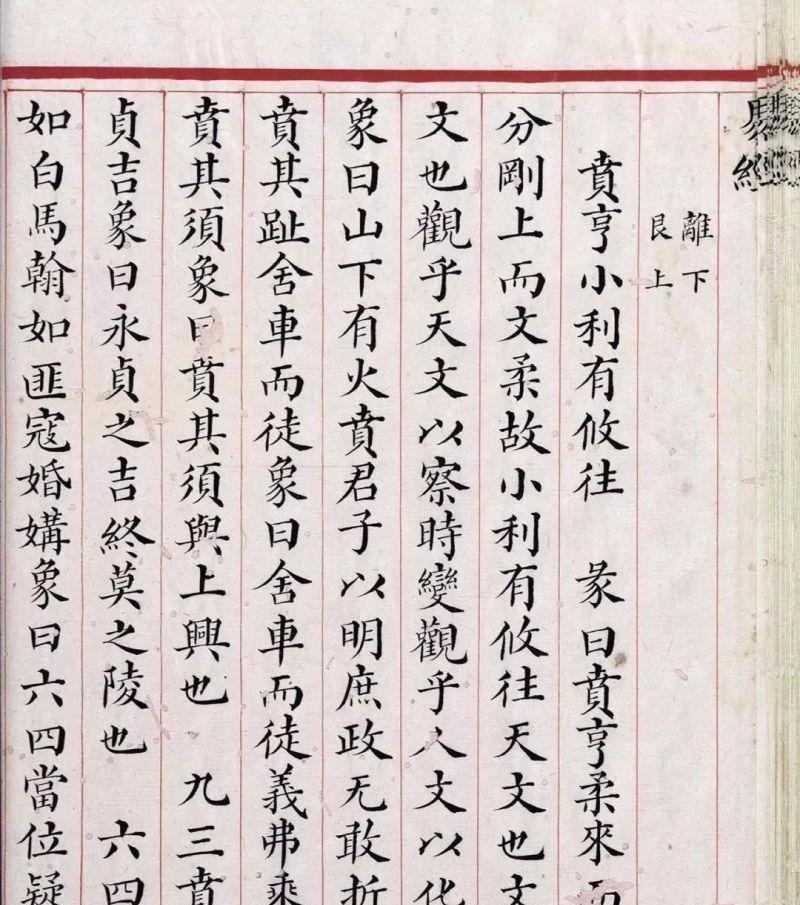 易經
離下
艮上
賁亨小利有攸往　彖曰賁亨柔來而
分剛上而文柔故小利有攸往天文也文
文也觀乎天文以察時變觀乎人文以化
象曰山下有火賁君子以明庶政无敢折
賁其趾舍車而徒象曰舍車而徒義弗乘
賁其須象曰賁其須與上興也　九三賁
貞吉象曰永貞之吉終莫之陵也　六四
如白馬翰如匪寇婚媾象曰六四當位疑